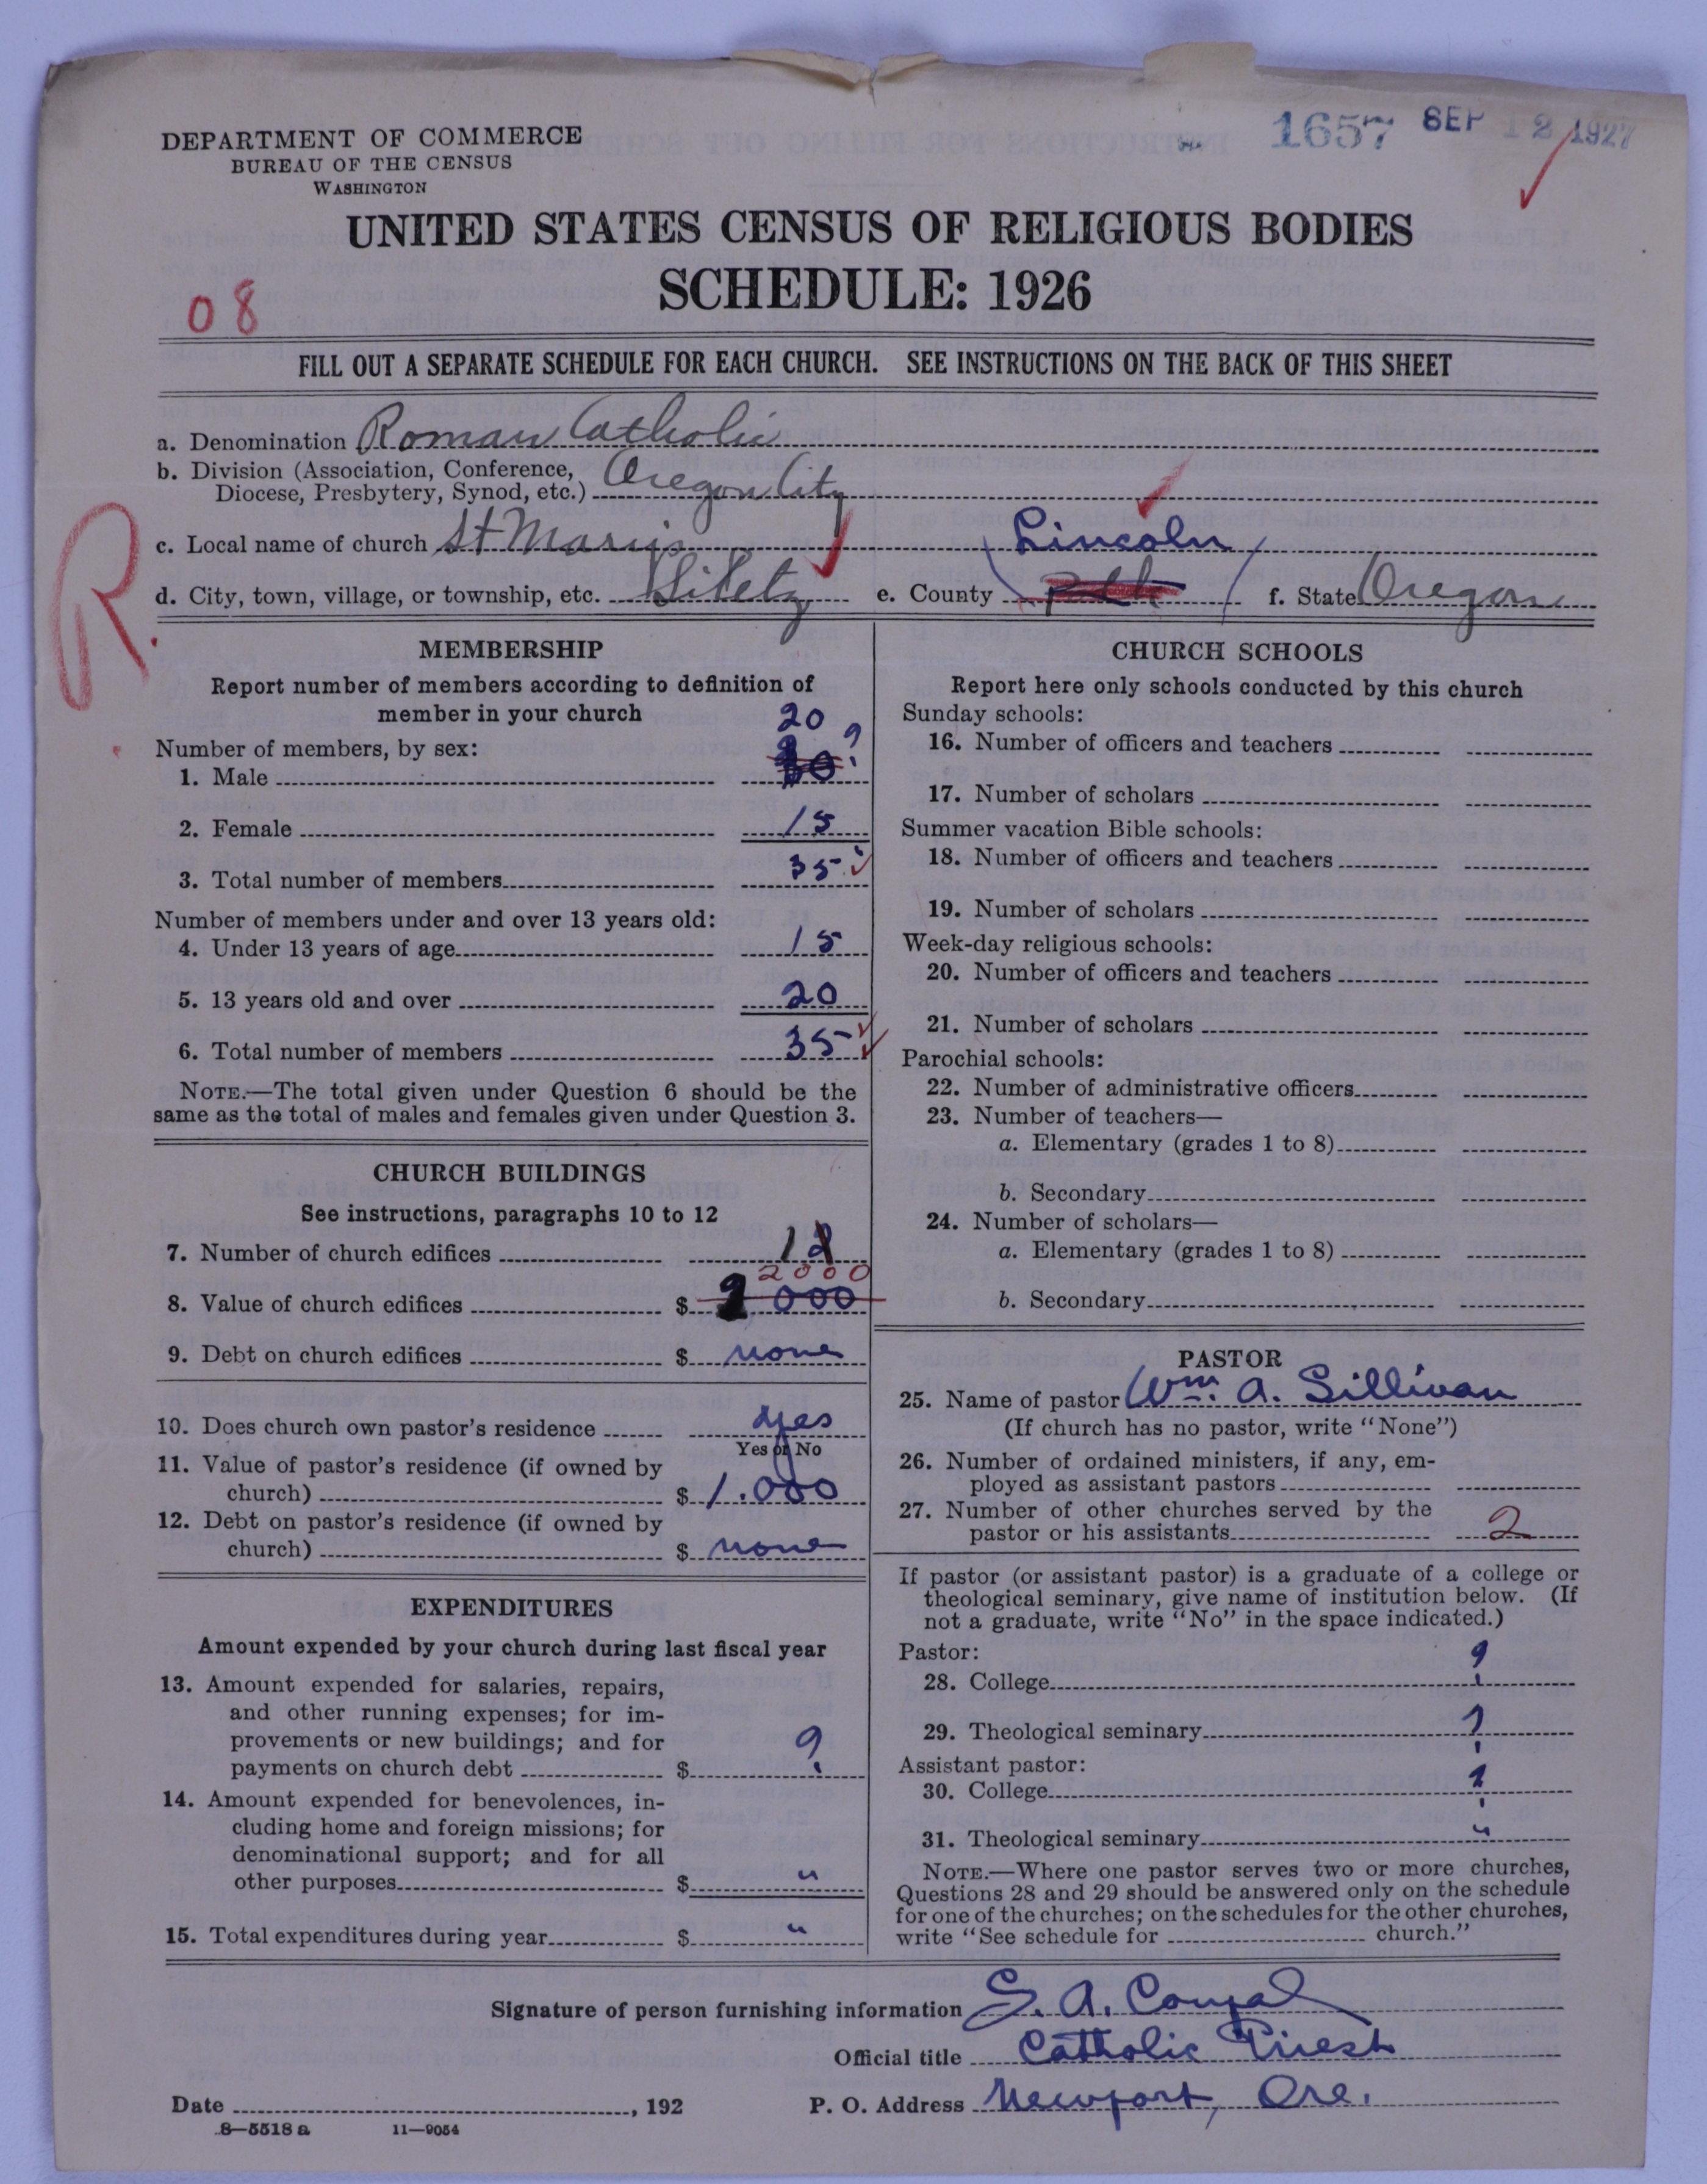 1657 SEP 12 1927
DEPARTMENT OF COMMERCE
BUREAU OF THE CENSUS
WASHINGTON
UNITED STATES CENSUS OF RELIGIOUS BODIES
SCHEDULE: 1926
08
FILL OUT A SEPARATE SCHEDULE FOR EACH CHURCH. SEE INSTRUCTIONS ON THE BACK OF THIS SHEET
a. Denomination Roman Catholic
b. Division (Association, Conference,
Diocese, Presbytery, Synod, etc.) Oregon City
c. Local name of church St Marys
Lincoln
d. City, town, village, or township, etc. Siletz e. County f. State Oregon
R.
MEMBERSHIP
Report number of members according to definition of
member in your church
20
Number of members, by sex:
1. Male ?
2. Female 15
3. Total number of members 35
Number of members under and over 13 years old:
4. Under 13 years of age 15
5. 13 years old and over 20
6. Total number of members 35
NOTE.—The total given under Question 6 should be the
same as the total of males and females given under Question 3.
CHURCH BUILDINGS
See instructions, paragraphs 10 to 12
7. Number of church edifices 1
2000
8. Value of church edifices $ 000
9. Debt on church edifices $ none
10. Does church own pastor's residence yes
Yes or No
11. Value of pastor's residence (if owned by
church) $ 1.000
12. Debt on pastor's residence (if owned by
church) $ none
EXPENDITURES
Amount expended by your church during last fiscal year
13. Amount expended for salaries, repairs,
and other running expenses; for im-
provements or new buildings; and for
payments on church debt $ ?
14. Amount expended for benevolences, in-
cluding home and foreign missions; for
denominational support; and for all
other purposes $ "
15. Total expenditures during year $ "
CHURCH SCHOOLS
Report here only schools conducted by this church
Sunday schools:
16. Number of officers and teachers
17. Number of scholars
Summer vacation Bible schools:
18. Number of officers and teachers
19. Number of scholars
Week-day religious schools:
20. Number of officers and teachers
21. Number of scholars
Parochial schools:
22. Number of administrative officers
23. Number of teachers—
a. Elementary (grades 1 to 8)
b. Secondary
24. Number of scholars—
a. Elementary (grades 1 to 8)
b. Secondary
PASTOR
25. Name of pastor Wm. A. Sillivan
(If church has no pastor, write "None")
26. Number of ordained ministers, if any, em-
ployed as assistant pastors
27. Number of other churches served by the
pastor or his assistants 2
If pastor (or assistant pastor) is a graduate of a college or
theological seminary, give name of institution below. (If
not a graduate, write "No" in the space indicated.)
Pastor:
28. College ?
29. Theological seminary ?
Assistant pastor:
30. College ?
31. Theological seminary "
NOTE.—Where one pastor serves two or more churches,
Questions 28 and 29 should be answered only on the schedule
for one of the churches; on the schedules for the other churches,
write "See schedule for church."
Signature of person furnishing information S. A.
Official title Catholic Priest
Date , 192 P. O. Address Newport, Ore.
8—5518 a 11—9054